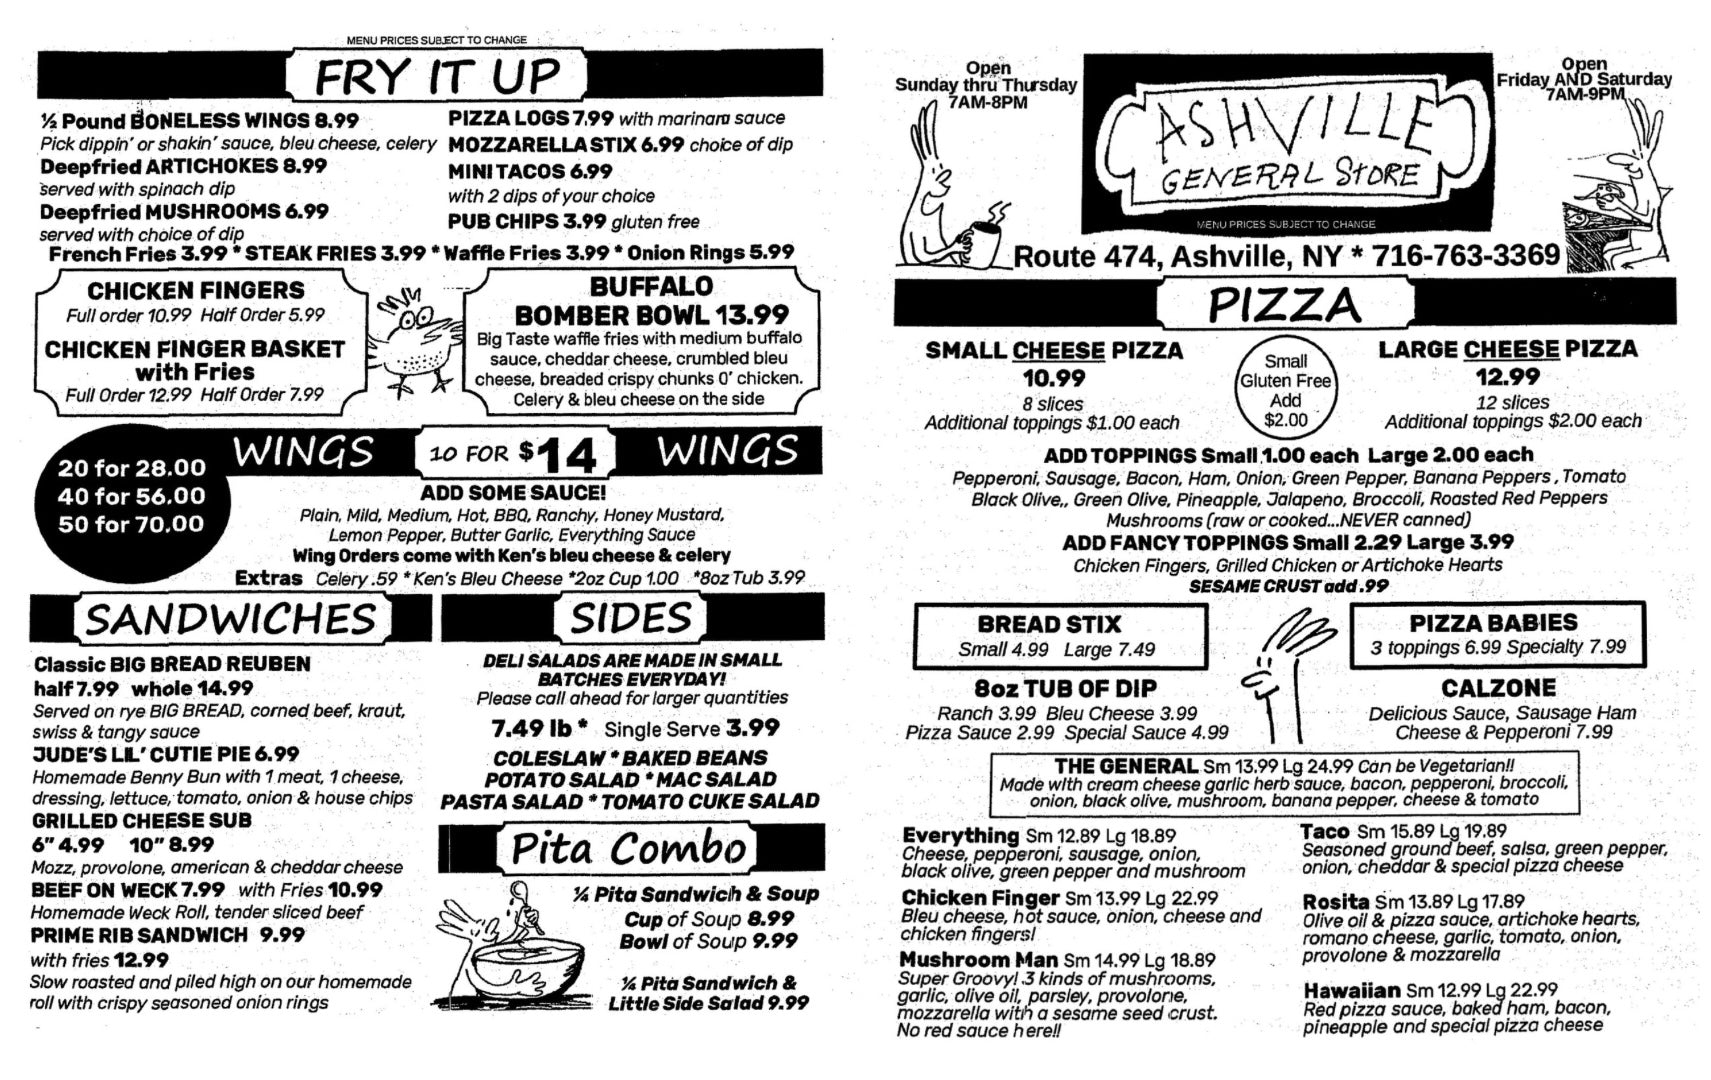 MENU PRICES SUBJECT TO CHANGE
FRY IT UP
½ Pound BONELESS WINGS 8.99
Pick dippin' or shakin' sauce, bleu cheese, celery
Deepfried ARTICHOKES 8.99
served with spinach dip
Deepfried MUSHROOMS 6.99
served with choice of dip
PIZZA LOGS 7.99 with marinara sauce
MOZZARELLA STIX 6.99 choice of dip
MINI TACOS 6.99
with 2 dips of your choice
PUB CHIPS 3.99 gluten free
French Fries 3.99 * STEAK FRIES 3.99 * Waffle Fries 3.99 * Onion Rings 5.99
CHICKEN FINGERS
Full order 10.99 Half Order 5.99
CHICKEN FINGER BASKET
with Fries
Full Order 12.99 Half Order 7.99
BUFFALO
BOMBER BOWL 13.99
Big Taste waffle fries with medium buffalo
sauce, cheddar cheese, crumbled bleu
cheese, breaded crispy chunks O' chicken.
Celery & bleu cheese on the side
WINGS 10 FOR $14 WINGS
20 for 28.00
40 for 56.00
50 for 70.00
ADD SOME SAUCE!
Plain, Mild, Medium, Hot, BBQ, Ranchy, Honey Mustard,
Lemon Pepper, Butter Garlic, Everything Sauce
Wing Orders come with Ken's bleu cheese & celery
Extras Celery .59 * Ken's Bleu Cheese *2oz Cup 1.00 *8oz Tub 3.99
SANDWICHES
Classic BIG BREAD REUBEN
half 7.99 whole 14.99
Served on rye BIG BREAD, corned beef, kraut,
swiss & tangy sauce
JUDE'S LIL' CUTIE PIE 6.99
Homemade Benny Bun with 1 meat, 1 cheese,
dressing, lettuce, tomato, onion & house chips
GRILLED CHEESE SUB
6" 4.99 10" 8.99
Mozz, provolone, american & cheddar cheese
BEEF ON WECK 7.99 with Fries 10.99
Homemade Weck Roll, tender sliced beef
PRIME RIB SANDWICH 9.99
with fries 12.99
Slow roasted and piled high on our homemade
roll with crispy seasoned onion rings
SIDES
DELI SALADS ARE MADE IN SMALL
BATCHES EVERYDAY!
Please call ahead for larger quantities
7.49 lb * Single Serve 3.99
COLESLAW * BAKED BEANS
POTATO SALAD * MAC SALAD
PASTA SALAD * TOMATO CUKE SALAD
Pita Combo
¼ Pita Sandwich & Soup
Cup of Soup 8.99
Bowl of Soup 9.99
¼ Pita Sandwich &
Little Side Salad 9.99
Open
Sunday thru Thursday
7AM-8PM
ASHVILLE
GENERAL STORE
MENU PRICES SUBJECT TO CHANGE
Open
Friday AND Saturday
7AM-9PM
Route 474, Ashville, NY * 716-763-3369
PIZZA
SMALL CHEESE PIZZA
10.99
8 slices
Additional toppings $1.00 each
Small
Gluten Free
Add
$2.00
LARGE CHEESE PIZZA
12.99
12 slices
Additional toppings $2.00 each
ADD TOPPINGS Small 1.00 each Large 2.00 each
Pepperoni, Sausage, Bacon, Ham, Onion, Green Pepper, Banana Peppers , Tomato
Black Olive,, Green Olive, Pineapple, Jalapeno, Broccoli, Roasted Red Peppers
Mushrooms (raw or cooked...NEVER canned)
ADD FANCY TOPPINGS Small 2.29 Large 3.99
Chicken Fingers, Grilled Chicken or Artichoke Hearts
SESAME CRUST add .99
BREAD STIX
Small 4.99 Large 7.49
PIZZA BABIES
3 toppings 6.99 Specialty 7.99
8oz TUB OF DIP
Ranch 3.99 Bleu Cheese 3.99
Pizza Sauce 2.99 Special Sauce 4.99
CALZONE
Delicious Sauce, Sausage Ham
Cheese & Pepperoni 7.99
THE GENERAL Sm 13.99 Lg 24.99 Can be Vegetarian!!
Made with cream cheese garlic herb sauce, bacon, pepperoni, broccoli,
onion, black olive, mushroom, banana pepper, cheese & tomato
Everything Sm 12.89 Lg 18.89
Cheese, pepperoni, sausage, onion,
black olive, green pepper and mushroom
Chicken Finger Sm 13.99 Lg 22.99
Bleu cheese, hot sauce, onion, cheese and
chicken fingers!
Mushroom Man Sm 14.99 Lg 18.89
Super Groovy! 3 kinds of mushrooms,
garlic, olive oil, parsley, provolone,
mozzarella with a sesame seed crust.
No red sauce here!!
Taco Sm 15.89 Lg 19.89
Seasoned ground beef, salsa, green pepper,
onion, cheddar & special pizza cheese
Rosita Sm 13.89 Lg 17.89
Olive oil & pizza sauce, artichoke hearts,
romano cheese, garlic, tomato, onion,
provolone & mozzarella
Hawaiian Sm 12.99 Lg 22.99
Red pizza sauce, baked ham, bacon,
pineapple and special pizza cheese